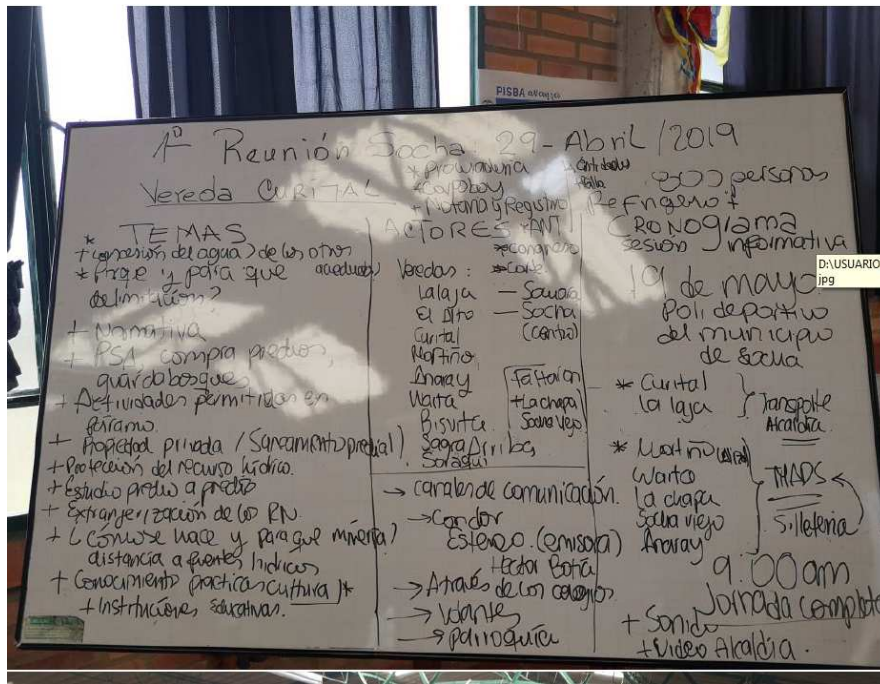 PISBA
1º Reunión Socha 29-Abril/2019
Vereda CURITAL
* TEMAS
+ concesión del agua de los otros acueductos
* Porqué y para que delimitación?
+ Normativa
+ PSA, compra predios,
guardabosques
+ Actividades permitidas en
páramo.
+ Propiedad privada / Saneamiento predial)
+ Protección del recurso hídrico.
+ Estudio predio a predio
+ Extranjerización de los RN.
+ ¿Cómo se hace y para que minería)
distancia a fuentes hídricas
+ Conocimiento practicas cultura)*
+ Instituciones educativas.
* Procuraduría
+ Corpoboy
+ Notaria y Registro
ACTORES + ANT
* Congreso
* Corte
Veredas :
La laja
El Alto
Curital
Mortiño
Anaray
Waita
Bisvita
Sagra Arriba
Soraqui
— Socotá
— Socha
(centro)
Faltaron
+ La chapa
Socha Viejo
→ canales de comunicación.
→ Condor
Estereo (emisora)
Hector Botia
→ A través de los colegios
→ Volantes
→ parroquía
800 personas
Refrigerio +
CRONOgrama
sesion informativa
19 de mayo
Polideportivo
del municipio
de Socha
* Curital
La laja
Transporte
Alcaldía
* Mortiño
Waita
La chapa
Socha viejo
Anaray
MADS
Silleteria
9:00 am
Jornada completa
+ Sonido
+ Video Alcaldía.
D:\USUARIO
jpg